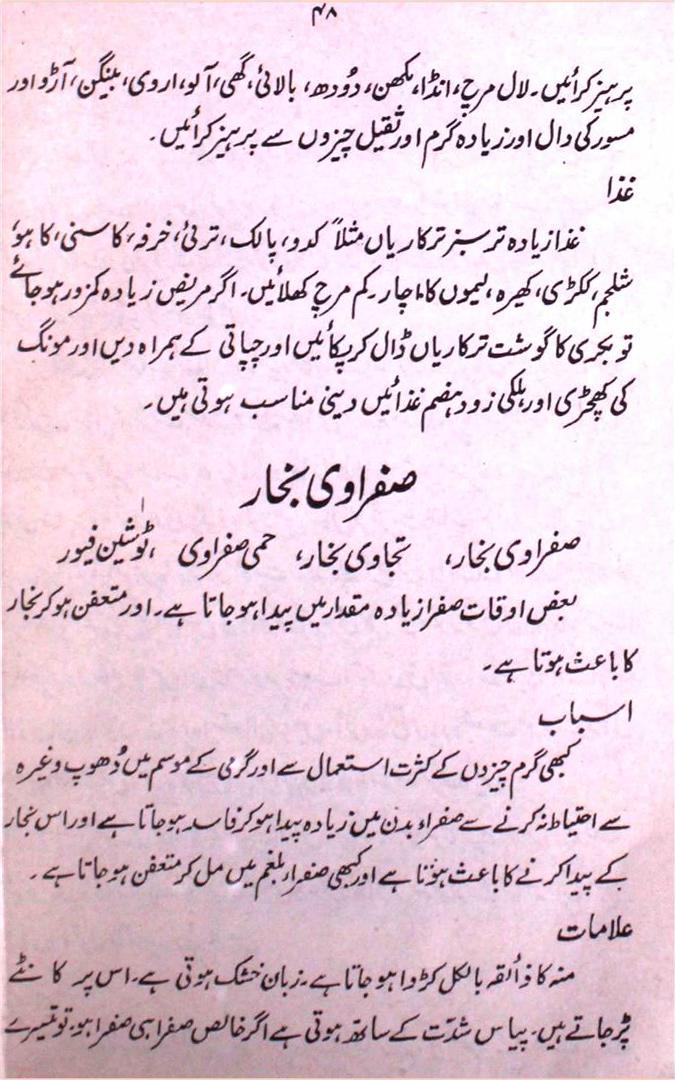 ۴۸
پرہیز کرائیں۔ لال مرچ، انڈا، مکھن، دُودھ، بالائی، گھی، آلو، اروی، بینگن، آڑو اور
مسور کی دال اور زیادہ گرم اور ثقیل چیزوں سے پرہیز کرائیں۔
غذا
غذا زیادہ تر سبز ترکاریاں مثلاً کدو، پالک، ترئی، خرفہ، کاسنی، کاہو
شلجم، ککڑی، کھیرہ، لیموں کا اچار۔ کم مرچ کھلائیں۔ اگر مریض زیادہ کمزور ہو جائے
تو بکری کا گوشت ترکاریاں ڈال کر پکائیں اور چپاتی کے ہمراہ دیں اور مونگ
کی کھچڑی اور ہلکی زود ہضم غذائیں دینی مناسب ہوتی ہیں۔
صفراوی بخار
صفراوی بخار، تجاوی بخار، حمی صفراوی، ٹوشین فیور
بعض اوقات صفرا زیادہ مقدار میں پیدا ہو جاتا ہے۔ اور متعفن ہو کر بخار
کا باعث ہوتا ہے۔
اسباب
کبھی گرم چیزوں کے کثرت استعمال سے اور گرمی کے موسم میں دُھوپ وغیرہ
سے احتیاط نہ کرنے سے صفراء بدن میں زیادہ پیدا ہو کر فاسد ہو جاتا ہے اور اس بخار
کے پیدا کرنے کا باعث ہوتا ہے اور کبھی صفراء بلغم میں مل کر متعفن ہو جاتا ہے۔
علامات
منہ کا ذائقہ بالکل کڑوا ہو جاتا ہے۔ زبان خشک ہوتی ہے۔ اس پر کانٹے
پڑ جاتے ہیں۔ پیاس شدّت کے ساتھ ہوتی ہے اگر خالص صفرا ہی صفرا ہو۔ تو تیسرے